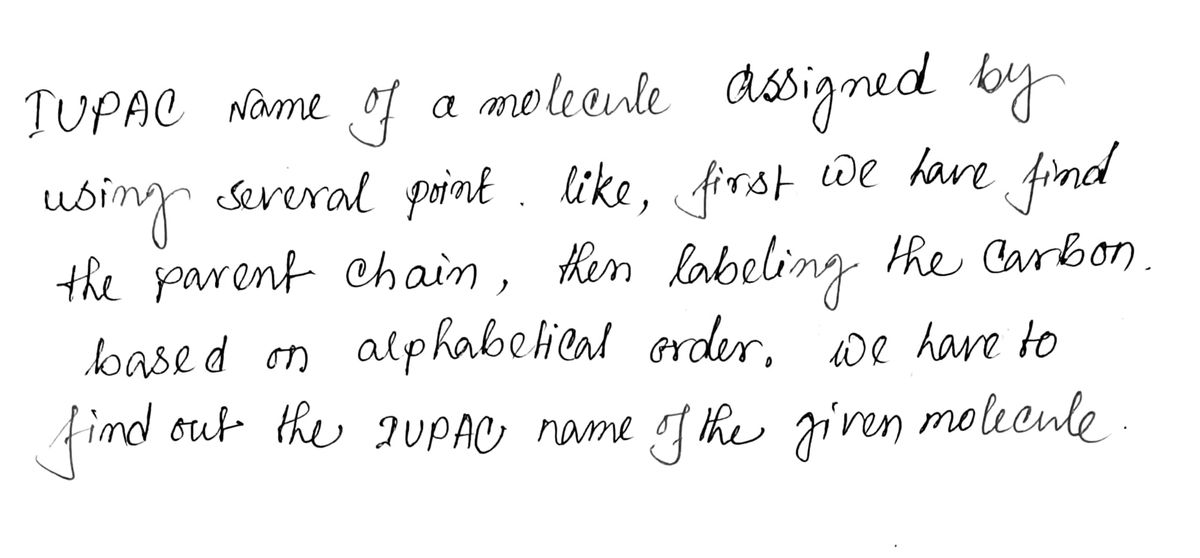 IUPAC Name of a molecule assigned by
using several point. like, first we have find
the parent chain, then labeling the Carbon.
based on alphabetical order. we have to
find out the IUPAC name of the given molecule.